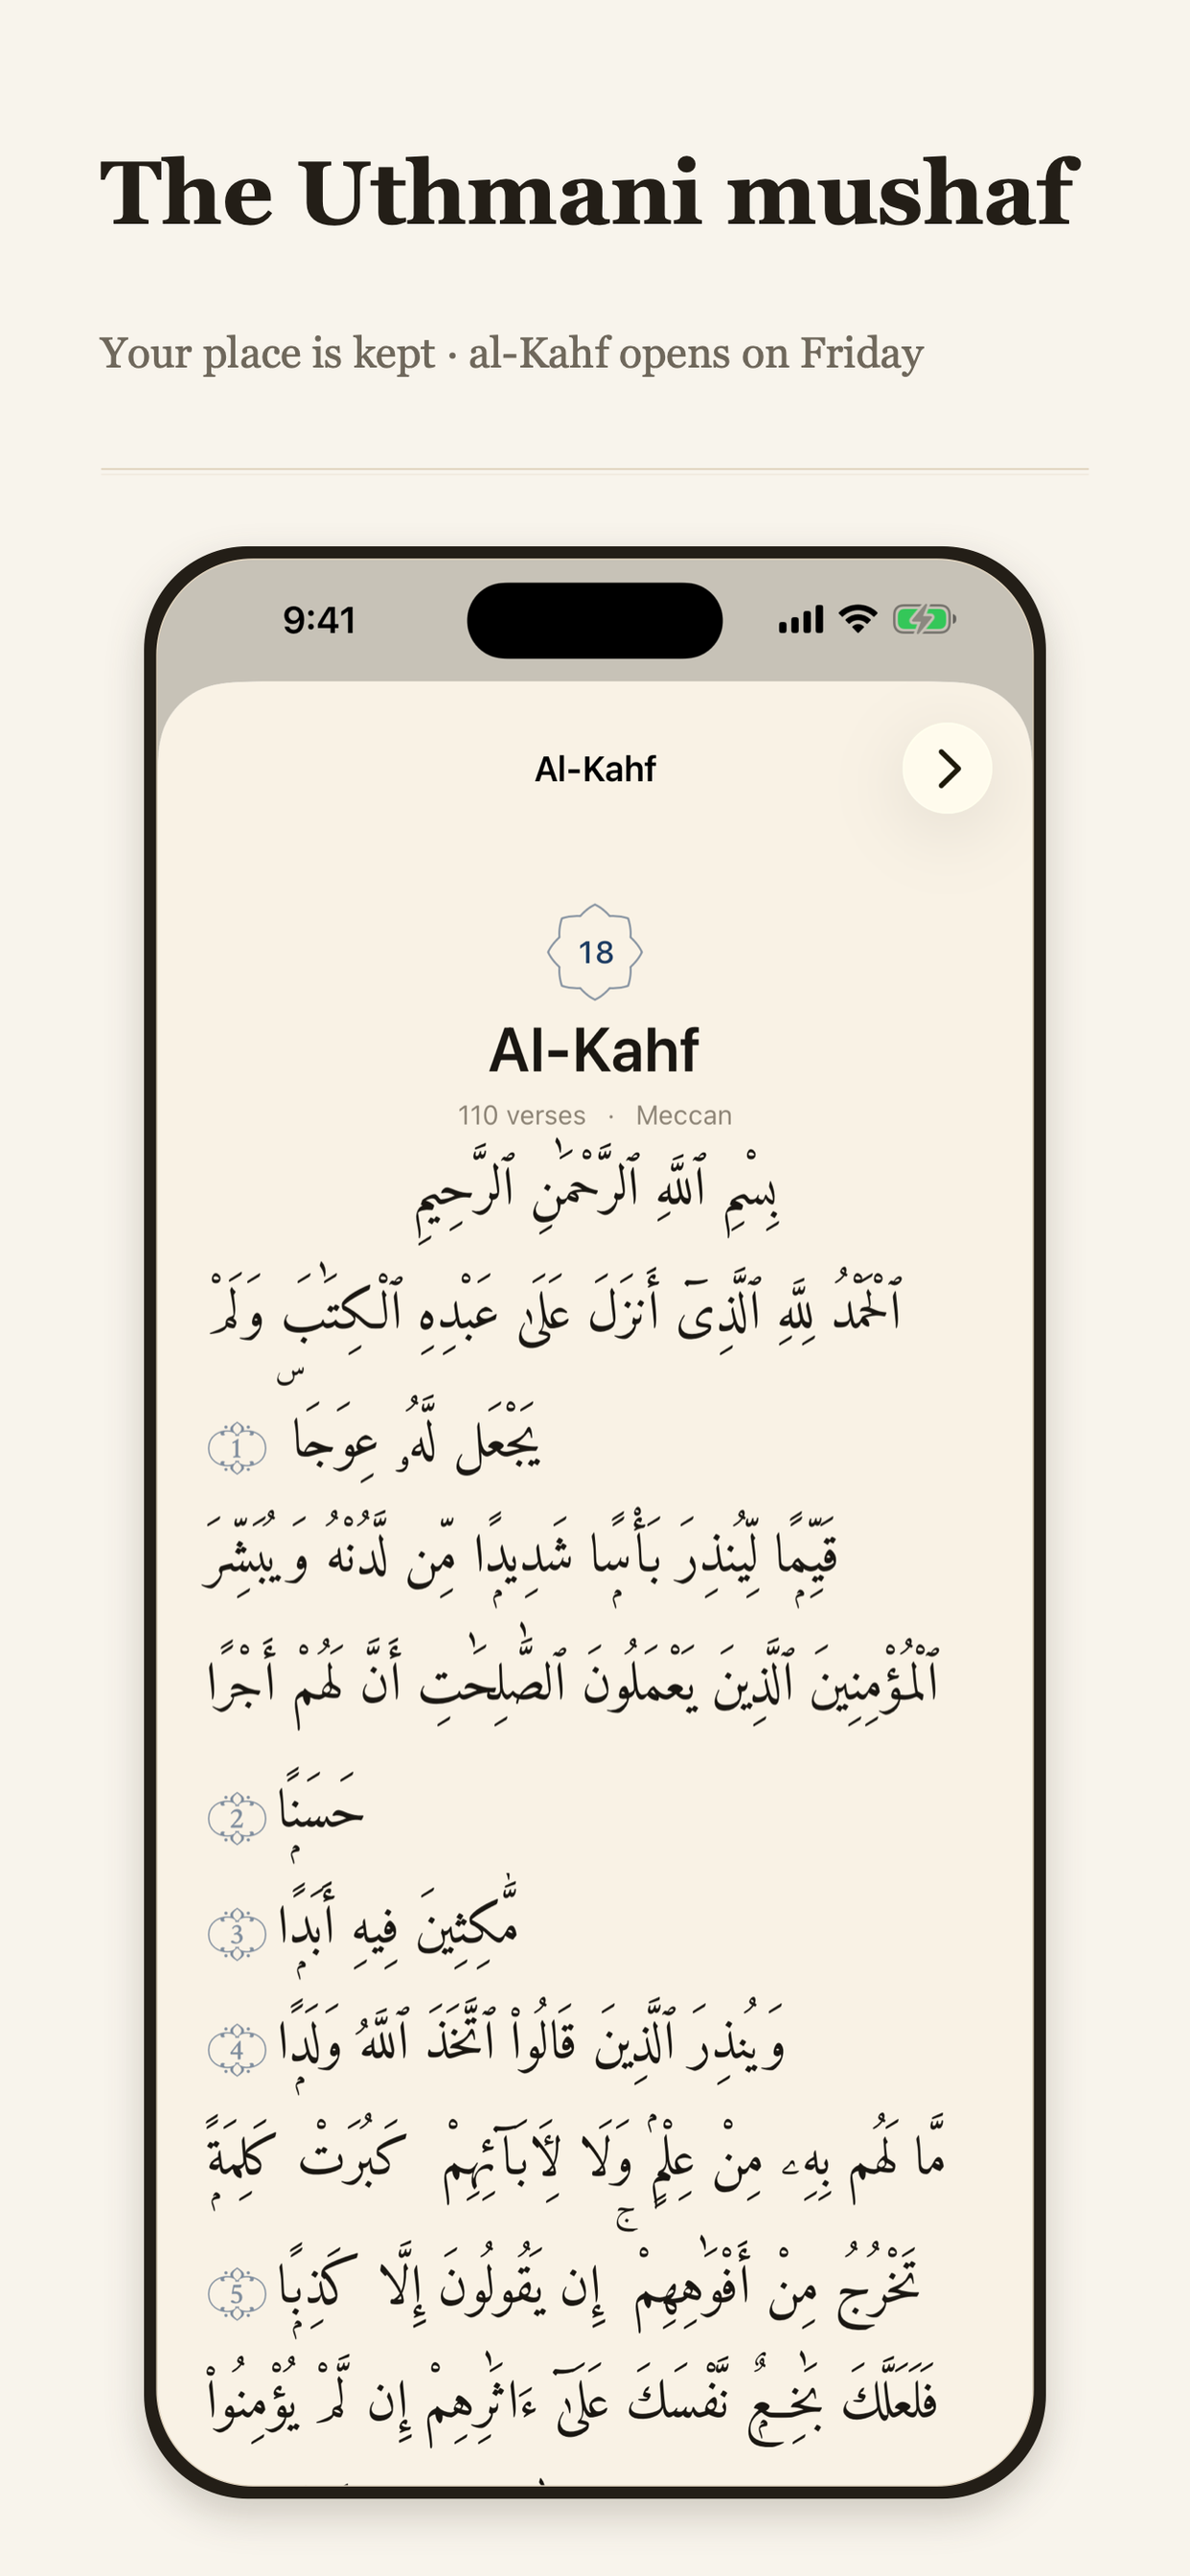 The Uthmani mushaf
Your place is kept · al-Kahf opens on Friday
9:41
Al-Kahf
18
Al-Kahf
110 verses · Meccan
بِسْمِ ٱللَّهِ ٱلرَّحْمَٰنِ ٱلرَّحِيمِ
ٱلْحَمْدُ لِلَّهِ ٱلَّذِىٓ أَنزَلَ عَلَىٰ عَبْدِهِ ٱلْكِتَٰبَ وَلَمْ
يَجْعَل لَّهُۥ عِوَجَاۜ 1
قَيِّمًۭا لِّيُنذِرَ بَأْسًۭا شَدِيدًۭا مِّن لَّدُنْهُ وَيُبَشِّرَ
ٱلْمُؤْمِنِينَ ٱلَّذِينَ يَعْمَلُونَ ٱلصَّٰلِحَٰتِ أَنَّ لَهُمْ أَجْرًا
حَسَنًۭا 2
مَّٰكِثِينَ فِيهِ أَبَدًۭا 3
وَيُنذِرَ ٱلَّذِينَ قَالُوا۟ ٱتَّخَذَ ٱللَّهُ وَلَدًۭا 4
مَّا لَهُم بِهِۦ مِنْ عِلْمٍۢ وَلَا لِـَٔابَآئِهِمْ كَبُرَتْ كَلِمَةًۭ
تَخْرُجُ مِنْ أَفْوَٰهِهِمْ ۚ إِن يَقُولُونَ إِلَّا كَذِبًۭا 5
فَلَعَلَّكَ بَٰخِعٌۭ نَّفْسَكَ عَلَىٰٓ ءَاثَٰرِهِمْ إِن لَّمْ يُؤْمِنُوا۟